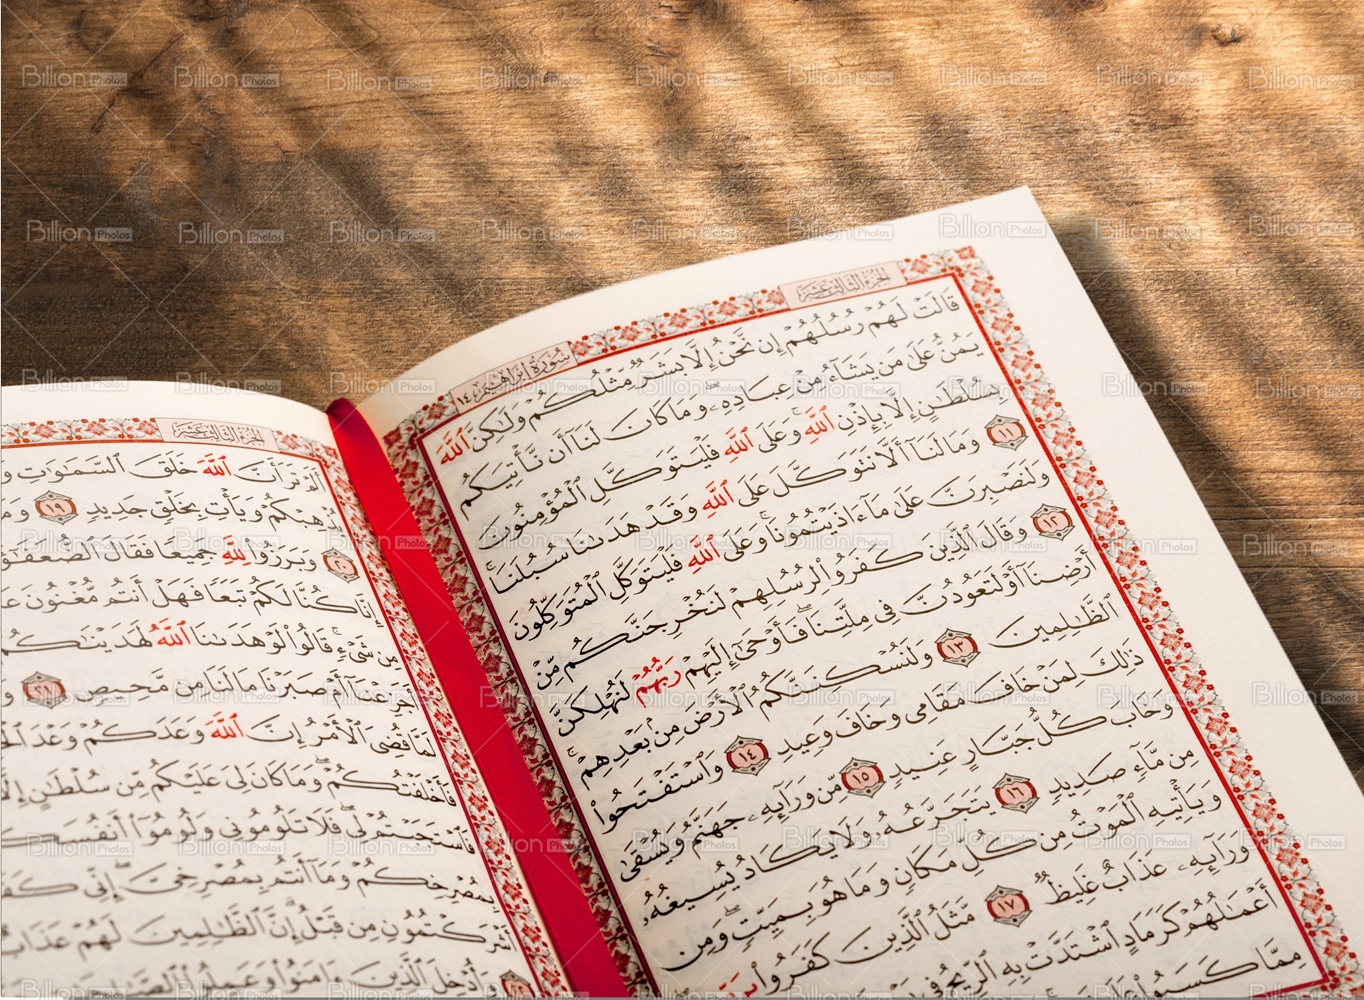 الجُزْءُ الثَّالِثَ عَشَرَ
سُورَةُ إِبْرَاهِيمَ ١٤
قَالَتْ لَهُمْ رُسُلُهُمْ إِن نَّحْنُ إِلَّا بَشَرٌ مِّثْلُكُمْ وَلَٰكِنَّ ٱللَّهَ
يَمُنُّ عَلَىٰ مَن يَشَآءُ مِنْ عِبَادِهِۦ ۖ وَمَا كَانَ لَنَآ أَن نَّأْتِيَكُم
بِسُلْطَٰنٍ إِلَّا بِإِذْنِ ٱللَّهِ ۚ وَعَلَى ٱللَّهِ فَلْيَتَوَكَّلِ ٱلْمُؤْمِنُونَ
١١ وَمَا لَنَآ أَلَّا نَتَوَكَّلَ عَلَى ٱللَّهِ وَقَدْ هَدَىٰنَا سُبُلَنَا ۚ
وَلَنَصْبِرَنَّ عَلَىٰ مَآ ءَاذَيْتُمُونَا ۚ وَعَلَى ٱللَّهِ فَلْيَتَوَكَّلِ ٱلْمُتَوَكِّلُونَ
١٢ وَقَالَ ٱلَّذِينَ كَفَرُوا۟ لِرُسُلِهِمْ لَنُخْرِجَنَّكُم مِّنْ
أَرْضِنَآ أَوْ لَتَعُودُنَّ فِى مِلَّتِنَا ۖ فَأَوْحَىٰٓ إِلَيْهِمْ رَبُّهُمْ لَنُهْلِكَنَّ
ٱلظَّٰلِمِينَ ١٣ وَلَنُسْكِنَنَّكُمُ ٱلْأَرْضَ مِنۢ بَعْدِهِمْ ۚ
ذَٰلِكَ لِمَنْ خَافَ مَقَامِى وَخَافَ وَعِيدِ ١٤ وَٱسْتَفْتَحُوا۟
وَخَابَ كُلُّ جَبَّارٍ عَنِيدٍ ١٥ مِّن وَرَآئِهِۦ جَهَنَّمُ وَيُسْقَىٰ
مِن مَّآءٍ صَدِيدٍ ١٦ يَتَجَرَّعُهُۥ وَلَا يَكَادُ يُسِيغُهُۥ
وَيَأْتِيهِ ٱلْمَوْتُ مِن كُلِّ مَكَانٍ وَمَا هُوَ بِمَيِّتٍ ۖ وَمِن
وَرَآئِهِۦ عَذَابٌ غَلِيظٌ ١٧ مَّثَلُ ٱلَّذِينَ كَفَرُوا۟
أَعْمَٰلُهُمْ كَرَمَادٍ ٱشْتَدَّتْ بِهِ ٱلرِّيحُ فِى
مِمَّا كَسَبُوا۟
الجُزْءُ الثَّالِثَ عَشَرَ
أَلَمْ تَرَ أَنَّ ٱللَّهَ خَلَقَ ٱلسَّمَٰوَٰتِ
يُذْهِبْكُمْ وَيَأْتِ بِخَلْقٍ جَدِيدٍ ١٩
٢٠ وَبَرَزُوا۟ لِلَّهِ جَمِيعًا فَقَالَ
إِنَّا كُنَّا لَكُمْ تَبَعًا فَهَلْ أَنتُم مُّغْنُونَ
مِن شَىْءٍ ۚ قَالُوا۟ لَوْ هَدَىٰنَا ٱللَّهُ لَهَدَيْنَٰكُمْ
أَجَزِعْنَآ أَمْ صَبَرْنَا مَا لَنَا مِن مَّحِيصٍ ٢١
لَمَّا قُضِىَ ٱلْأَمْرُ إِنَّ ٱللَّهَ وَعَدَكُمْ وَعْدَ
فَأَخْلَفْتُكُمْ ۖ وَمَا كَانَ لِىَ عَلَيْكُم مِّن سُلْطَٰنٍ
فَٱسْتَجَبْتُمْ لِى ۖ فَلَا تَلُومُونِى وَلُومُوٓا۟
بِمُصْرِخِكُمْ وَمَآ أَنتُم بِمُصْرِخِىَّ ۖ إِنِّى
أَشْرَكْتُمُونِ مِن قَبْلُ ۗ إِنَّ ٱلظَّٰلِمِينَ لَهُمْ
وَأُدْخِلَ ٱلَّذِينَ ءَامَنُوا۟ وَعَمِلُوا۟
Billion Photos